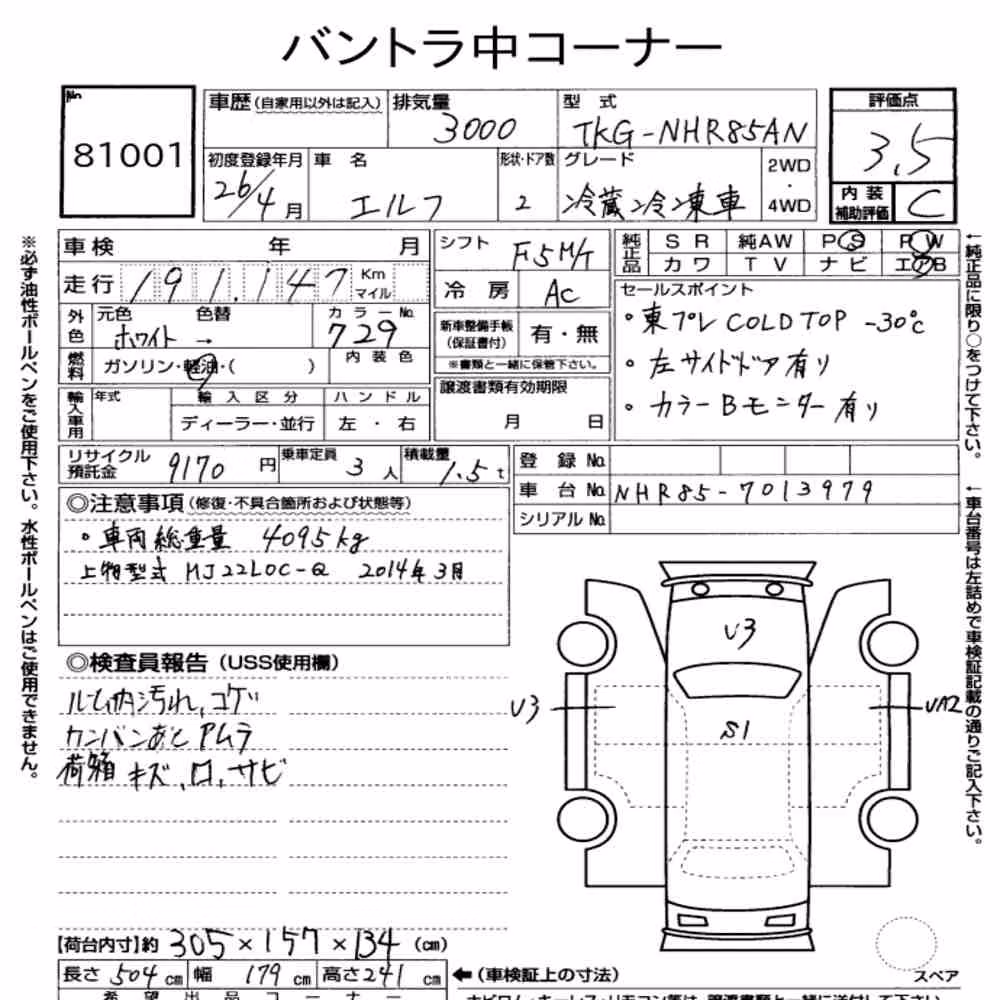 バントラ中コーナー
No 81001
車歴(自家用以外は記入) 排気量 3000 型式 TKG-NHR85AN
評価点 3,5
初度登録年月 26/4月 車名 エルフ 形状・ドア数 2 グレード 冷蔵冷凍車 2WD・4WD
内装補助評価 C
車検 年 月
走行 191.147 Km マイル
シフト F5M/T
冷房 AC
純正品 SR 純AW PS PW
カワ TV ナビ エアB
外色 元色 ホワイト → 色替 カラーNo. 729
燃料 ガソリン・軽油・( ) 内装色
新車整備手帳(保証書付) 有・無
※書類と一緒に保管下さい。
セールスポイント
・東プレ COLD TOP -30℃
・左サイドドア有り
・カラーBモニター有り
輸入車用 年式 輸入区分 ハンドル
ディーラー・並行 左・右
譲渡書類有効期限
月 日
リサイクル預託金 9170円 乗車定員 3人 積載量 1.5t
登録No.
車台No. NHR85-7013979
シリアルNo.
◎注意事項(修復・不具合箇所および状態等)
・車両総重量 4095kg
上物型式 MJ22LOC-Q 2014年3月
◎検査員報告(USS使用欄)
ルーム内汚れ、コゲ
カンバンあと アムラ
荷箱 キズ、ロ、サビ
U3
U3
S1
UA2
【荷台内寸】約 305×157×134 (cm)
長さ 504cm 幅 179cm 高さ 241cm ←(車検証上の寸法)
スペア
希望出品コーナー
※必ず油性ボールペンをご使用下さい。水性ボールペンはご使用できません。
←純正品に限り○をつけて下さい。
←車台番号は左詰めで車検証記載の通りご記入下さい。